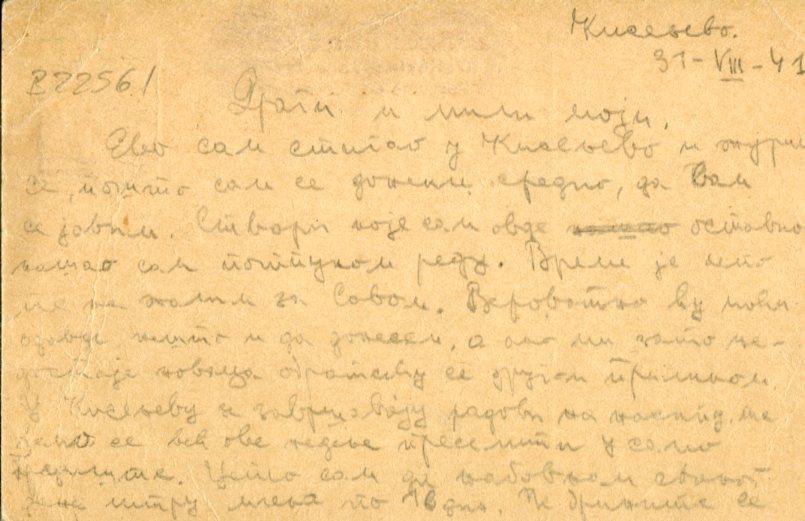 Кисељево.
31-VIII-41
P22561
Драги и мили моји,
Ево сам стигао у Кисељево и журим
се, пошто сам се донекле средио, да Вам
се јавим. Ствари које сам овде оставио
нашао сам потпуном реду. Време је лепо
те не жалим за Савом. Вероватно ћу
одавде нешто и да донесем, а ако ми зато не-
достаје новаца обратићу се другом приликом.
У Кисељеву се завршавају радови на насипу те
се већ ове недеље преселити у само
сам да набавком
литру млека по дин. Не брините се